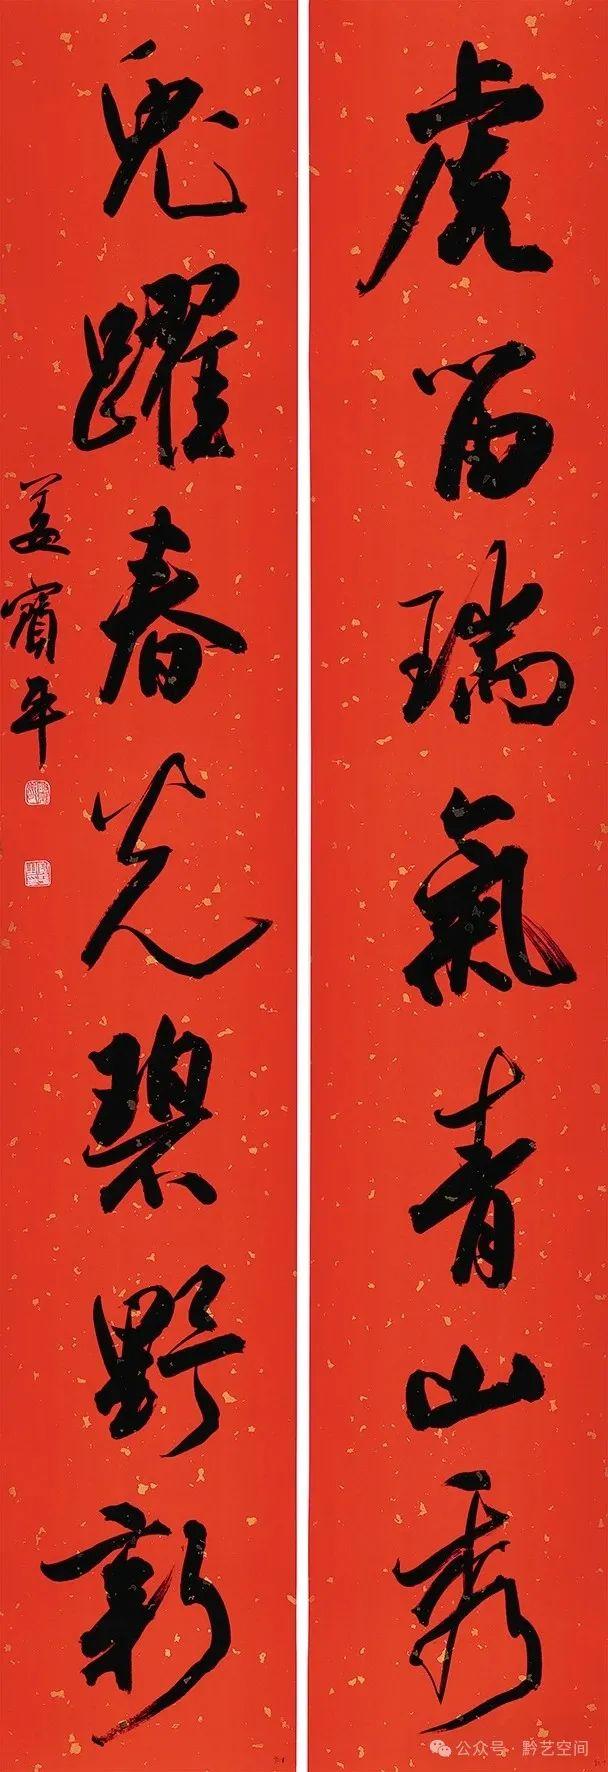 虎留瑞氣青山秀
兔躍春光碧野新
姜賓平
公众号·黔艺空间